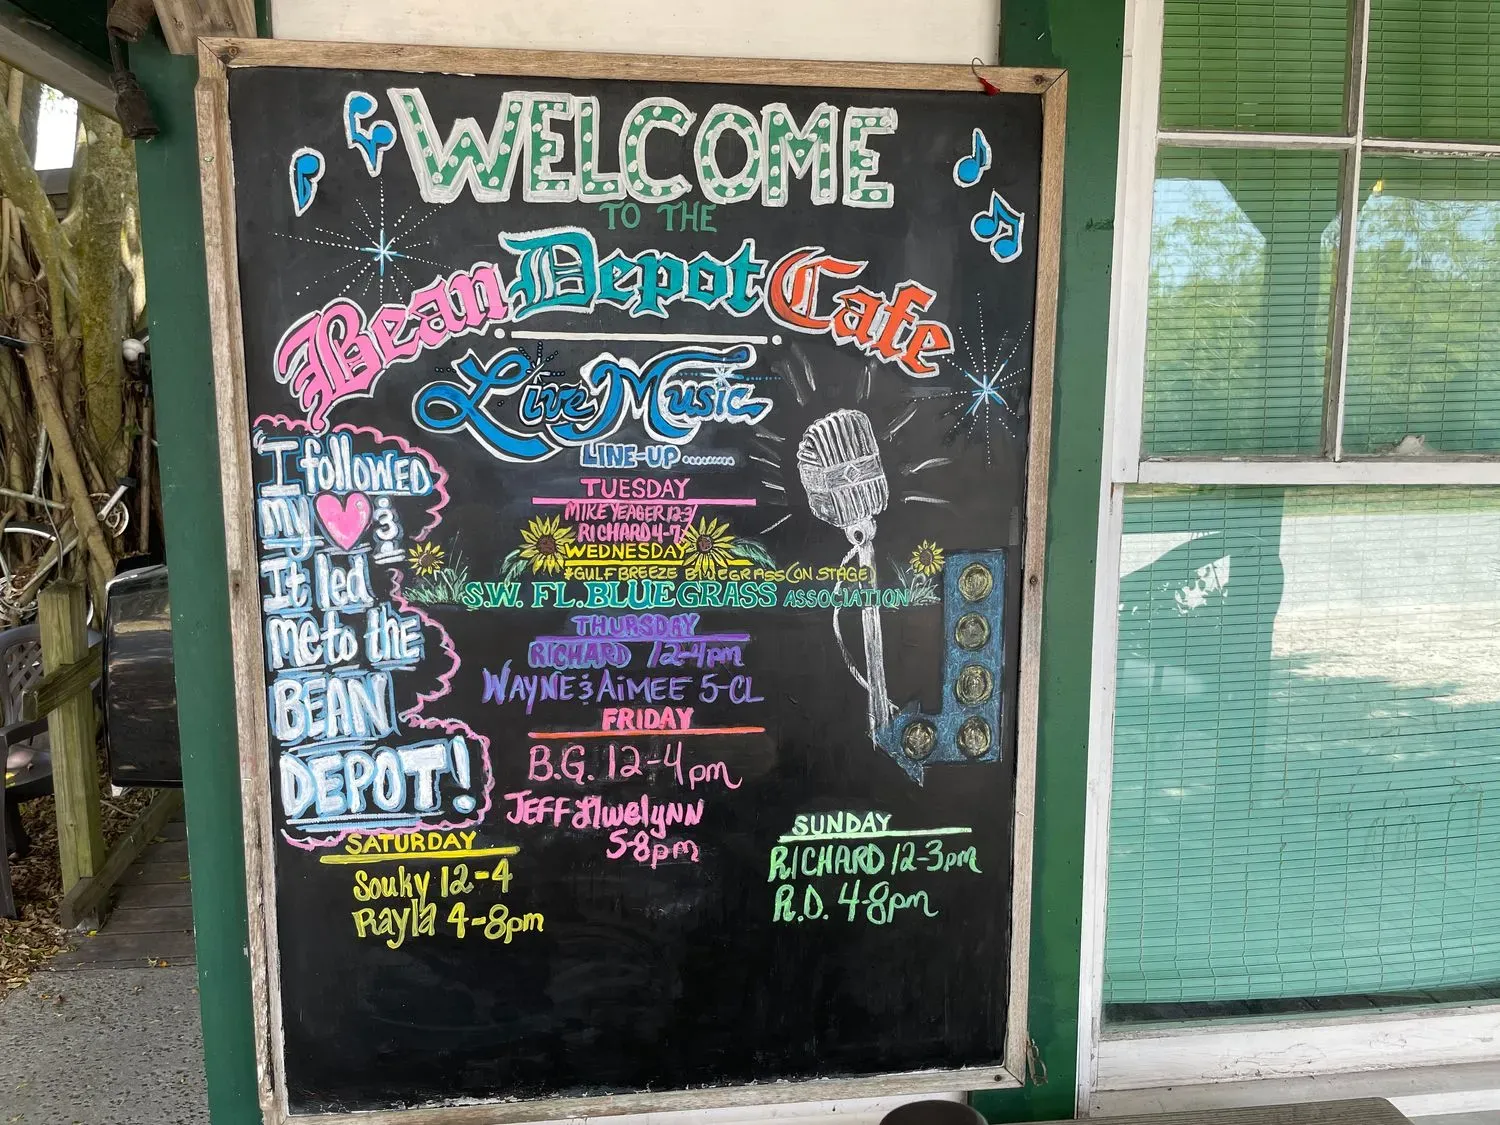 WELCOME
TO THE
Bean Depot Cafe
Live Music
LINE-UP........
"I followed
my &
It led
me to the
BEAN
DEPOT!
TUESDAY
MIKE YEAGER 12-3/
RICHARD 4-7
WEDNESDAY
*GULF BREEZE BLUEGRASS (ON STAGE)
S.W. FL. BLUEGRASS ASSOCIATION
THURSDAY
RICHARD 12-4pm
WAYNE & AiMEE 5-CL
FRIDAY
B.G. 12-4pm
JEFF Llwelynn
5-8pm
SATURDAY
Souky 12-4
Rayla 4-8pm
SUNDAY
RICHARD 12-3pm
R.D. 4-8pm